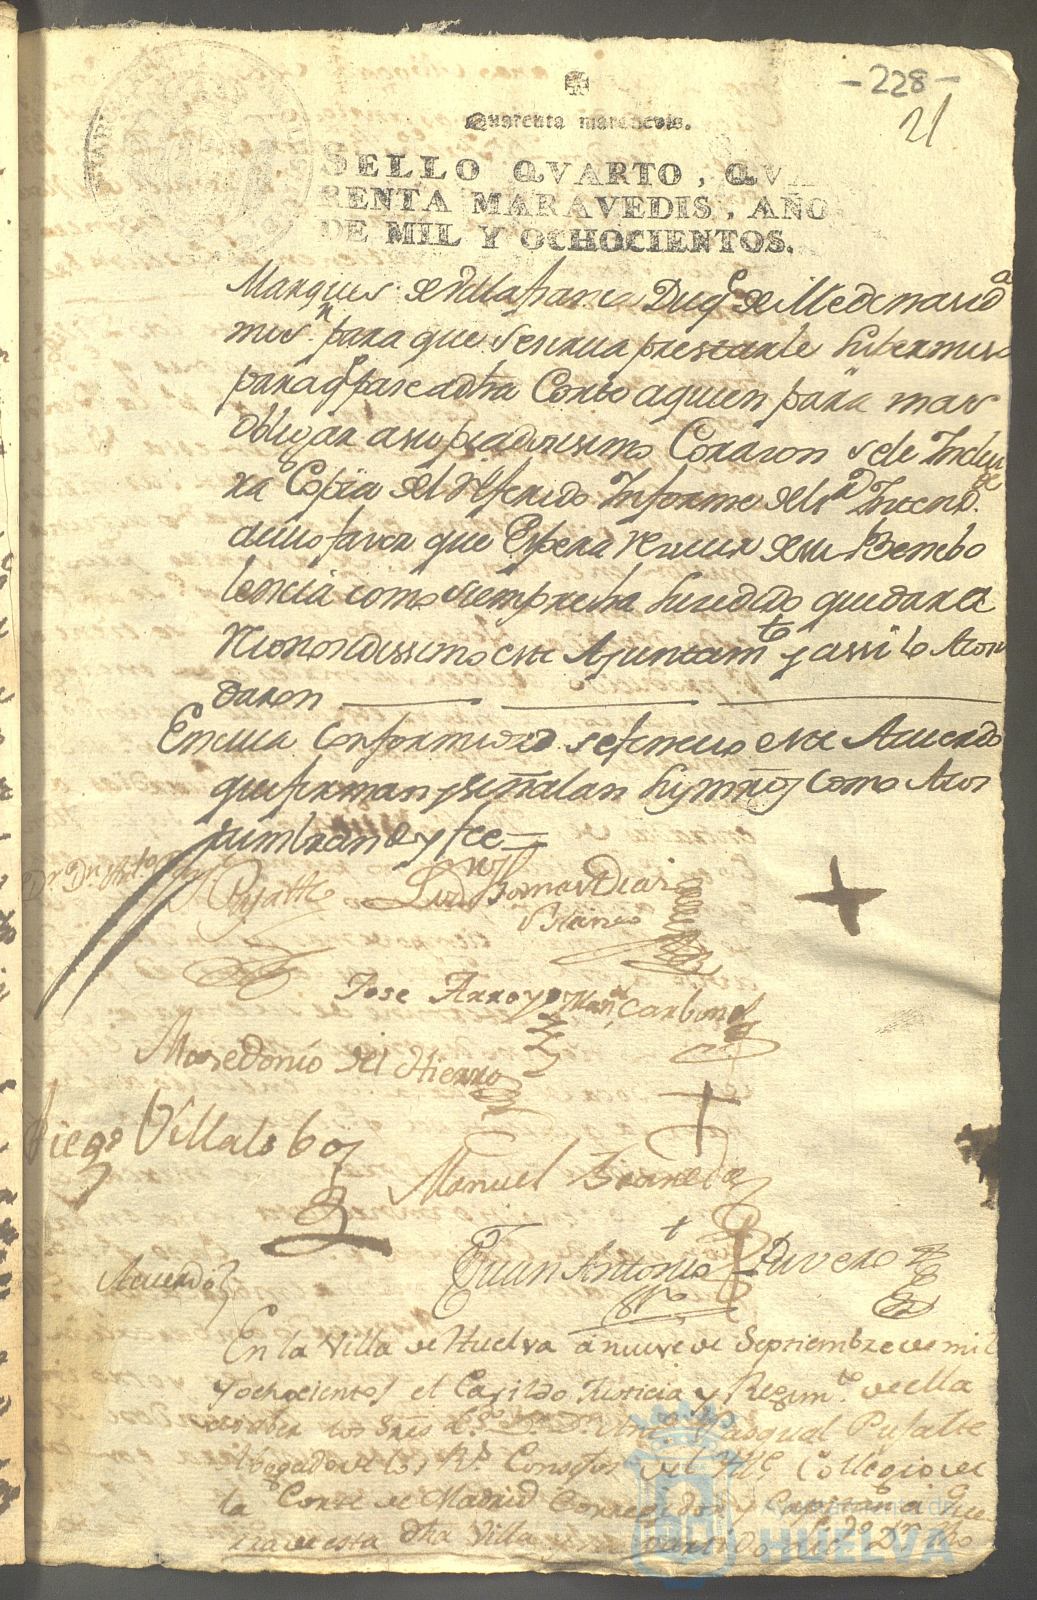 -228-
21
Quarenta maravedis.
SELLO QVARTO, QVA
RENTA MARAVEDIS, AÑO
DE MIL Y OCHOCIENTOS.
Marques de Villafranca Duq.e de Medinasid.a
para que se sirva prestarle su
para q pase a dha Corte a quien para mas
obligar a su piadosissimo Corazon se le Inclui
ra Copia del referido Informe del Intend.te
de cuio favor que Espera recivir de su Benebo
lencia como siempre ha sucedido quedara
reconocidissimo este Ayuntam.to y assi lo Acor
daron
En cuia conformidad se fenecio este Acuerdo
que firman y señalan sus mrds como Acos
tumbran doy fee =
Pufalte
Blanco
Jose Arroyo Man.l Carbonel
Masedonio del Hierro
Diego Villalobos
Manuel
Juan Antonio Rivero
Acuerdo
En la Villa de Huelva a nueve de Septiembre de mil
y ochocientos el Cavildo Justicia y Regim.to de ella
es a saber los Sres Pasqual Pufalte
Abogado de los R.s Consejos del Ill.e Collegio de
la Corte de Madrid Corregidor y Capitan a Gue
rra de esta dha Villa y su partido
Ayuntamiento de
HUELVA